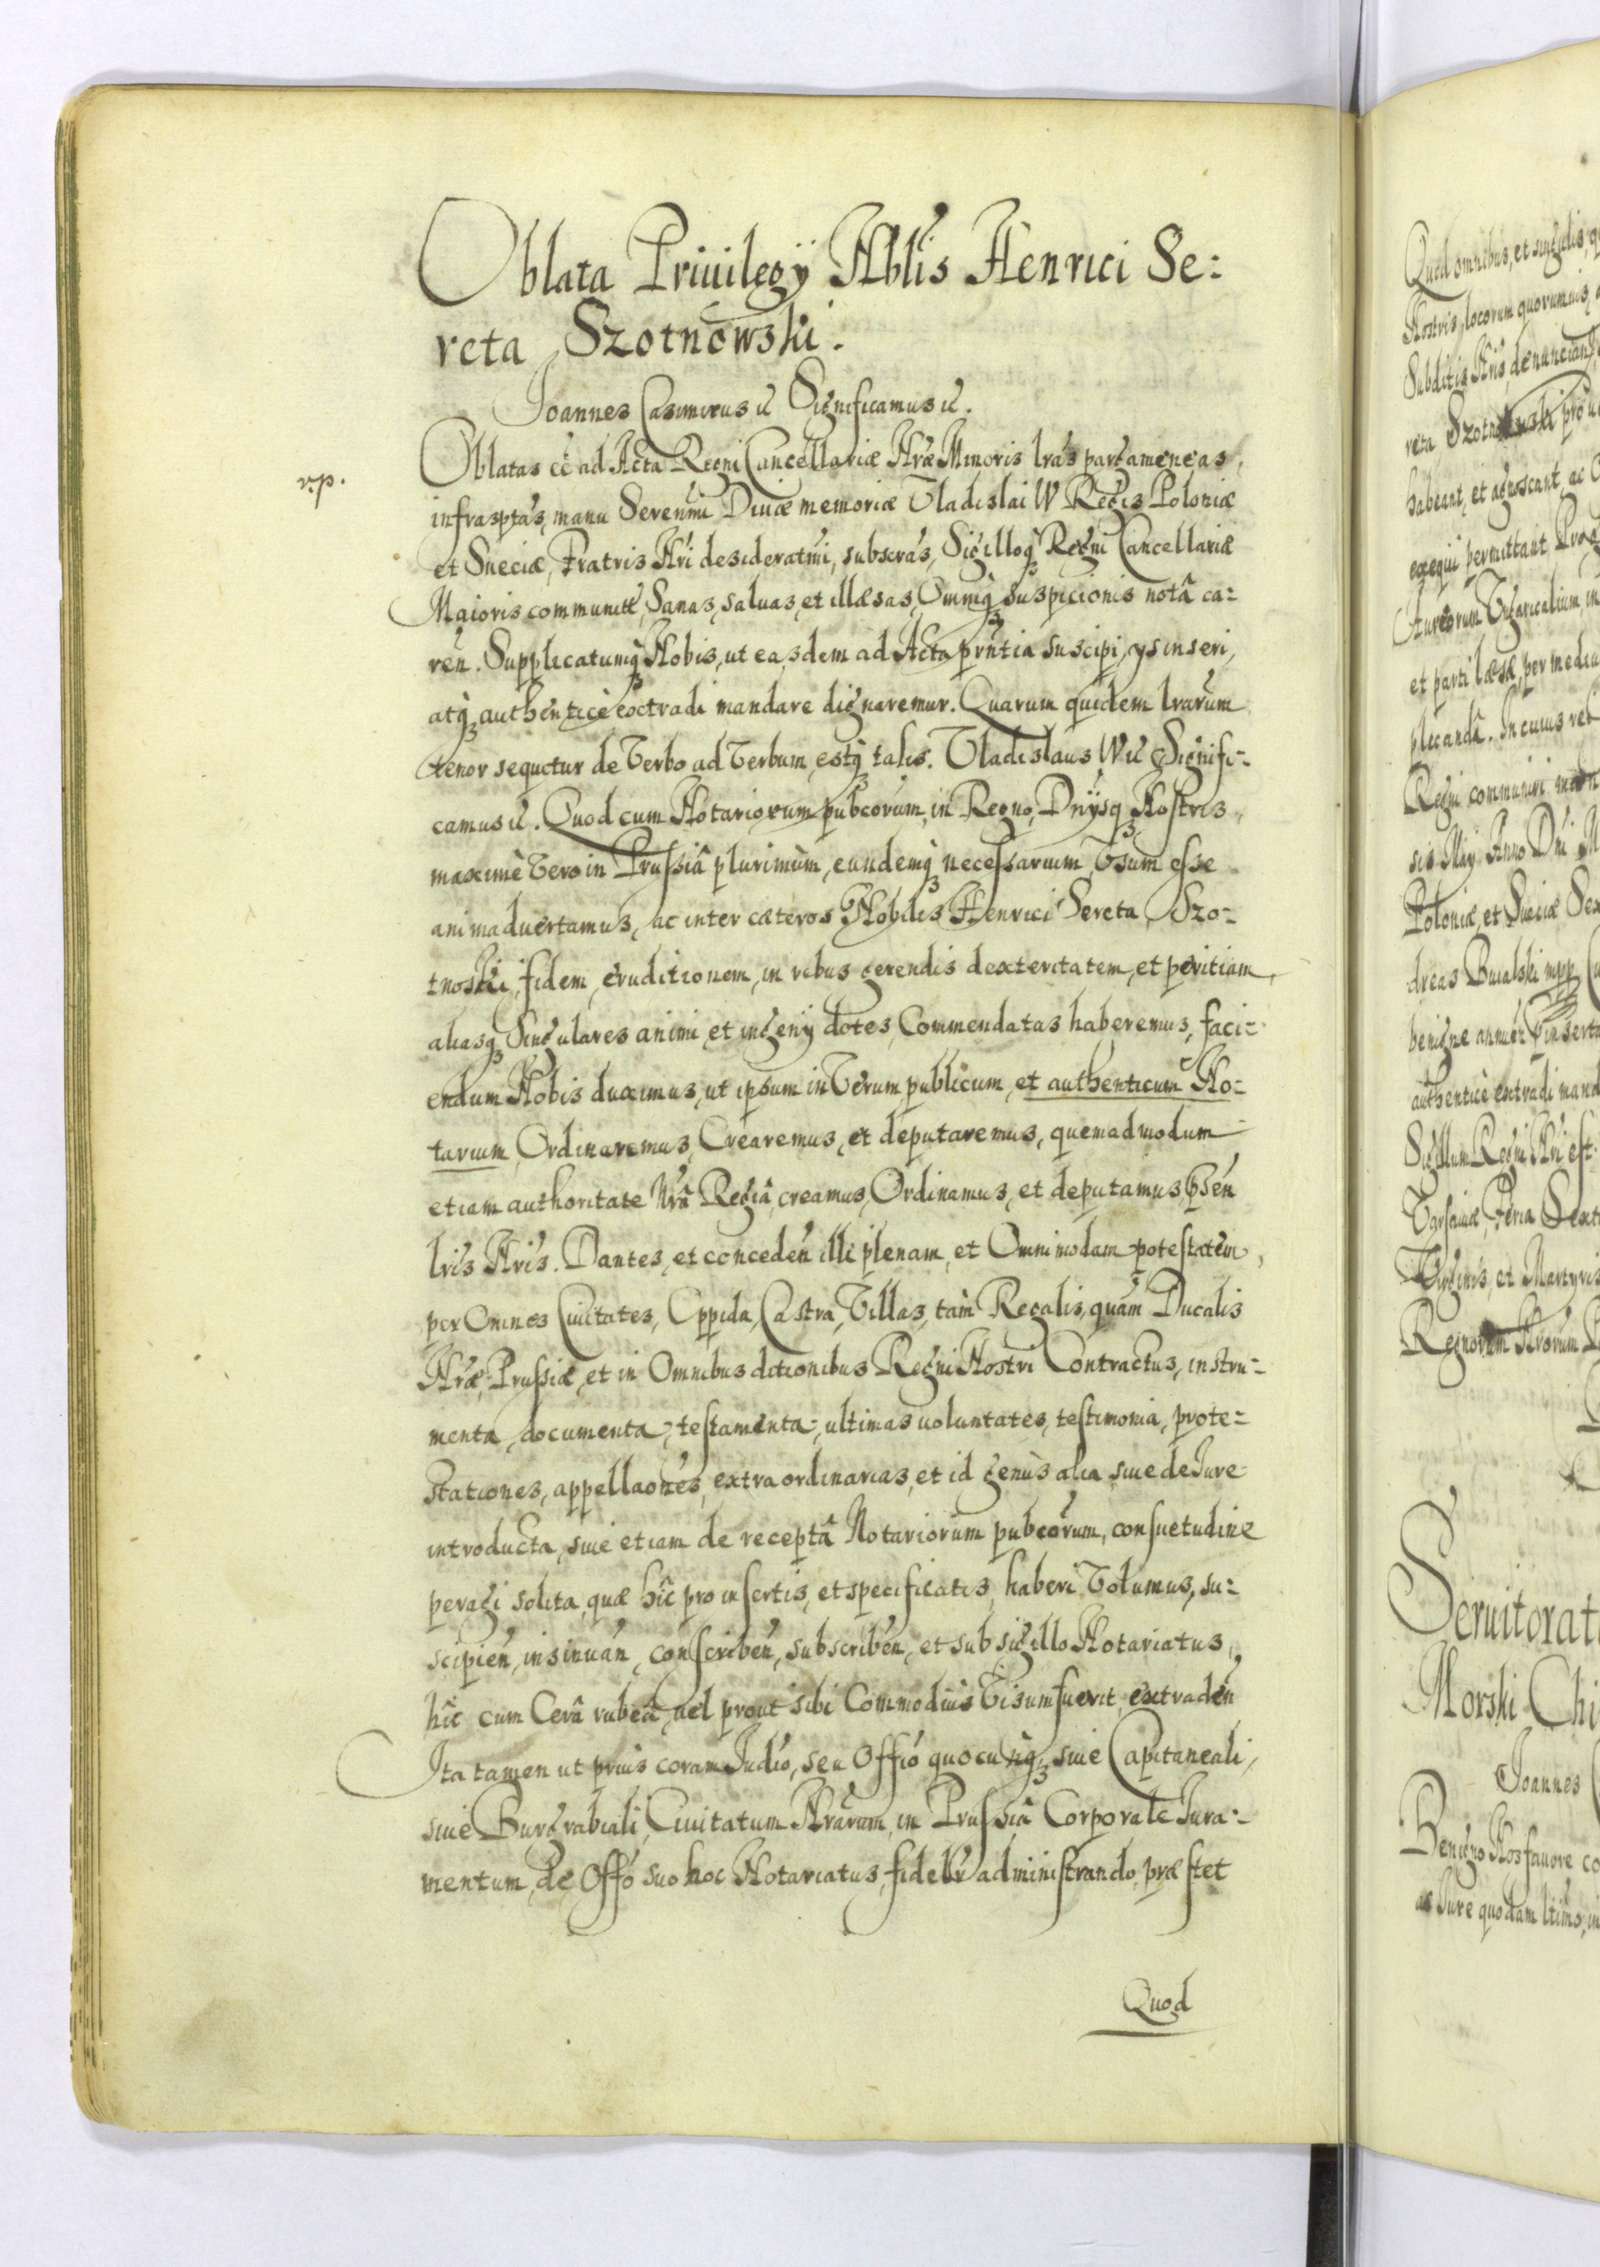 Oblata Priuilegÿ Nblis Henrici Se:
reta Szotnowski.
Joannes Casimirus etc Significamus etc.
r.p.
Oblatas eē ad Acta Regni Cancellariæ Nræ Minoris lras pargameneas,
infrasptas, manu Serenmi Diuæ memoriæ Vladislai IV Regis Poloniæ
et Sueciæ, Fratris Nri desideratmi, subscras, Sigilloq Regni Cancellariæ
Maioris communitt, Sanas, saluas, et illæsas, Omniq suspicionis notâ ca:
ren. Supplicatumq Nobis, ut easdem ad Acta prntia suscipi, ijs inseri,
atq authenticè extradi mandare dignaremur. Quarum quidem lrarum
tenor sequitur de Verbo ad Verbum, estq talis. Vladislaus IV etc Signifi:
camus etc. Quod cum Notariorum pubcorum, in Regno, Dnÿsq Nostris,
maximè Vero in Prussiâ plurimùm, eundemq necessarium Vsum esse
animaduertamus, ac inter cæteros Nobilis Henrici Sereta Szo:
tnoski, fidem, eruditionem, in rebus gerendis dexteritatem, et peritiam,
aliasq Singulares animi et ingenÿ dotes, Commendatas haberemus, faci:
endum Nobis duximus, ut ipsum in Verum publicum, et authenticum No:
tarium, Ordinaremus, Crearemus, et deputaremus, quemadmodum
etiam authoritate Nrâ Regiâ, creamus, Ordinamus, et deputamus, psen
lris Nris. Dantes, et conceden illi plenam, et Omnimodam potestatem,
per Omnes Ciuitates, Oppida, Castra, Villas, tàm Regalis, quàm Ducalis
Nræ Prussiæ, et in Omnibus ditionibus Regni Nostri Contractus, instru:
menta, documenta, testamenta, ultimas uoluntates, testimonia, prote:
stationes, appellaones, extraordinarias, et id genus alia, siue de Iure
introducta, siue etiam de receptâ Notariorum pubcorum, consuetudine
peragi solita, quæ hîc pro insertis, et specificatis, haberi Volumus, su:
scipien, insinuan, conscriben, subscriben, et sub sigillo Notariatus,
hîc cum Cerâ rubeâ, uel prout sibi Commodius Visum fuerit, extraden
Ita tamen ut priùs coram Iudio, seu Offio quocunq, siue Capitaneali,
siue Burgrabiali, Ciuitatum Nrarum, in Prussiâ Corporale Iura:
mentum, de Offo suo hoc Notariatus, fidelr administrando, præstet
Quod
Quod omnibus, et singulis, q
Nostris, locorum quorumuis,
Subditis Nris, denuncian
reta Szotnowski pro
habeant, et agnoscant, ac
exequi permittant. Pro
Aureorum Vngaricalium, in
et parti læsæ, per mediu
plicandâ. In cuius rei
Regni communiri
sis Maÿ Anno Dni M
Poloniæ, et Sueciæ Sex
dreas Buialski mpp
benigne annuen, inserta
authenticè extradi mand
Sigillum Regni Nri est.
Varsauiæ, Feria Sext
Virginis, et Martyris
Regnorum Nrorum
Seruitorat
Morski Chi
Joannes
Benigno Nos fauore co
as Iure quodam ltimo, in